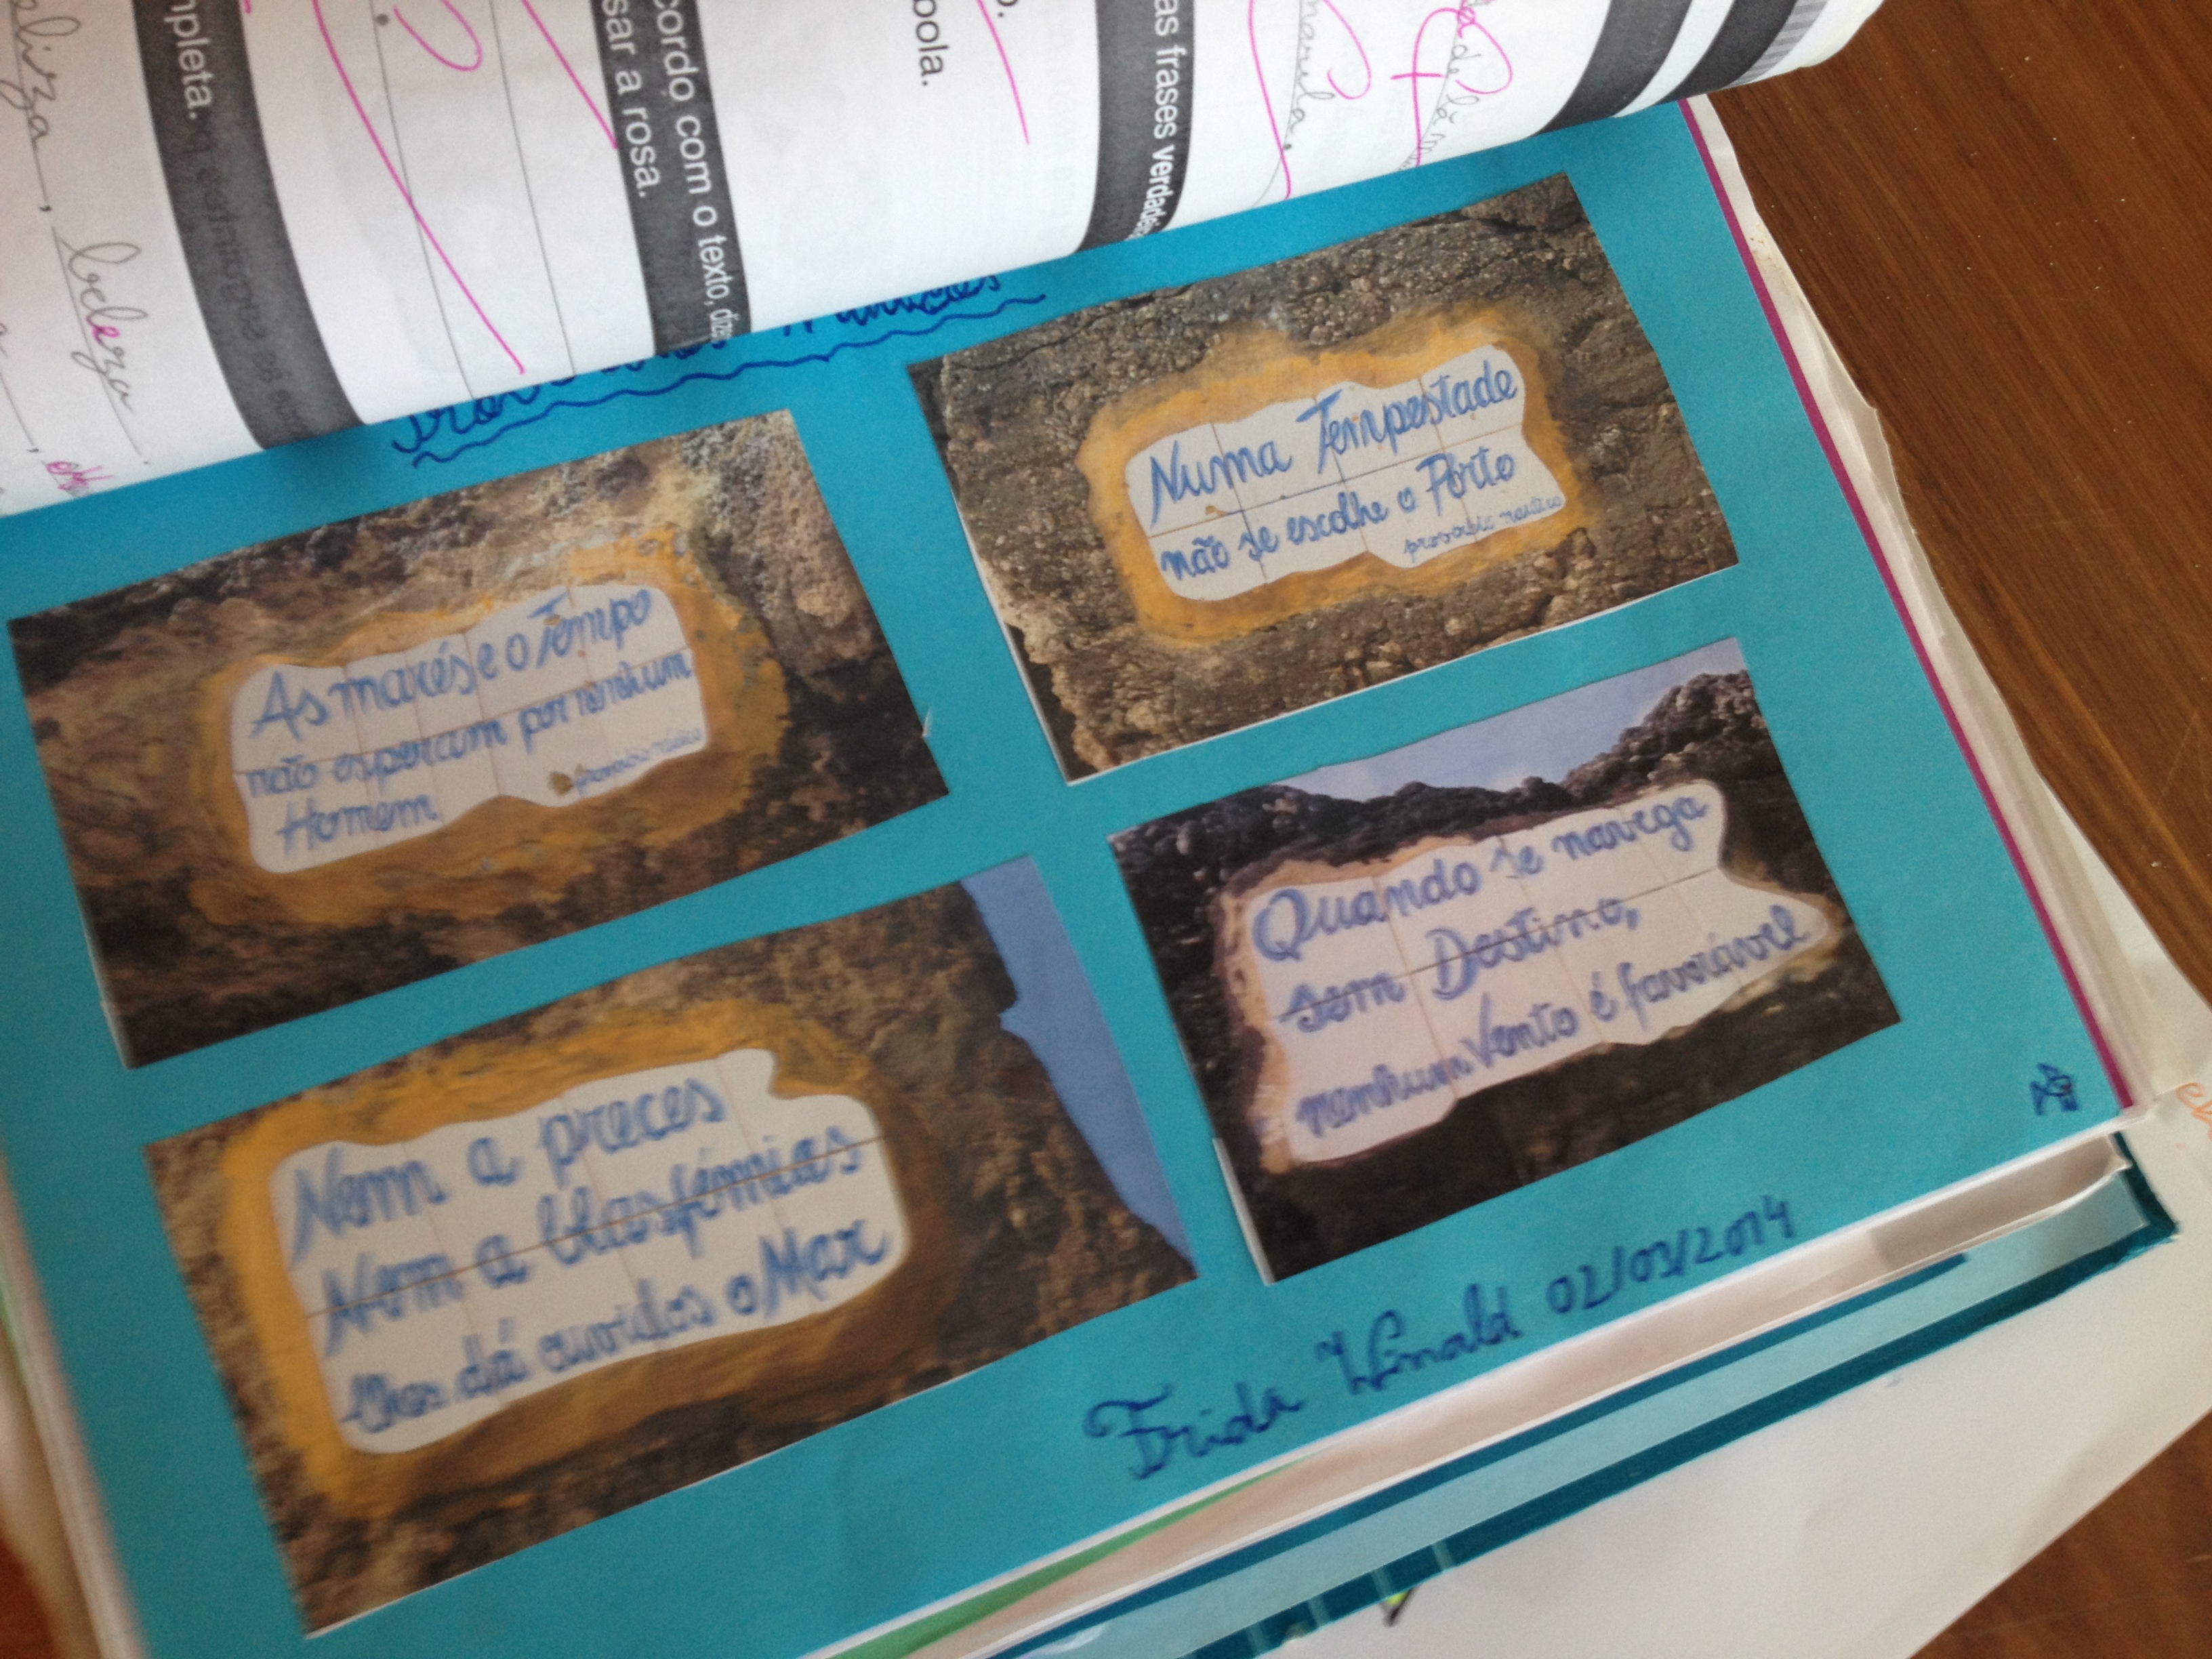 eliza, beleza.
mpleta.
cordo com o texto, diz
sar a rosa.
bola.
as frases verdade
As marés e o Tempo
não esperam por nenhum
Homem
provérbio náutico
Numa Tempestade
não se escolhe o Porto
provérbio náutico
Nem a preces
Nem a blasfémias
lhes dá ouvidos o Mar
Quando se navega
sem Destino,
nenhum Vento é favorável
Frida 02/03/2014